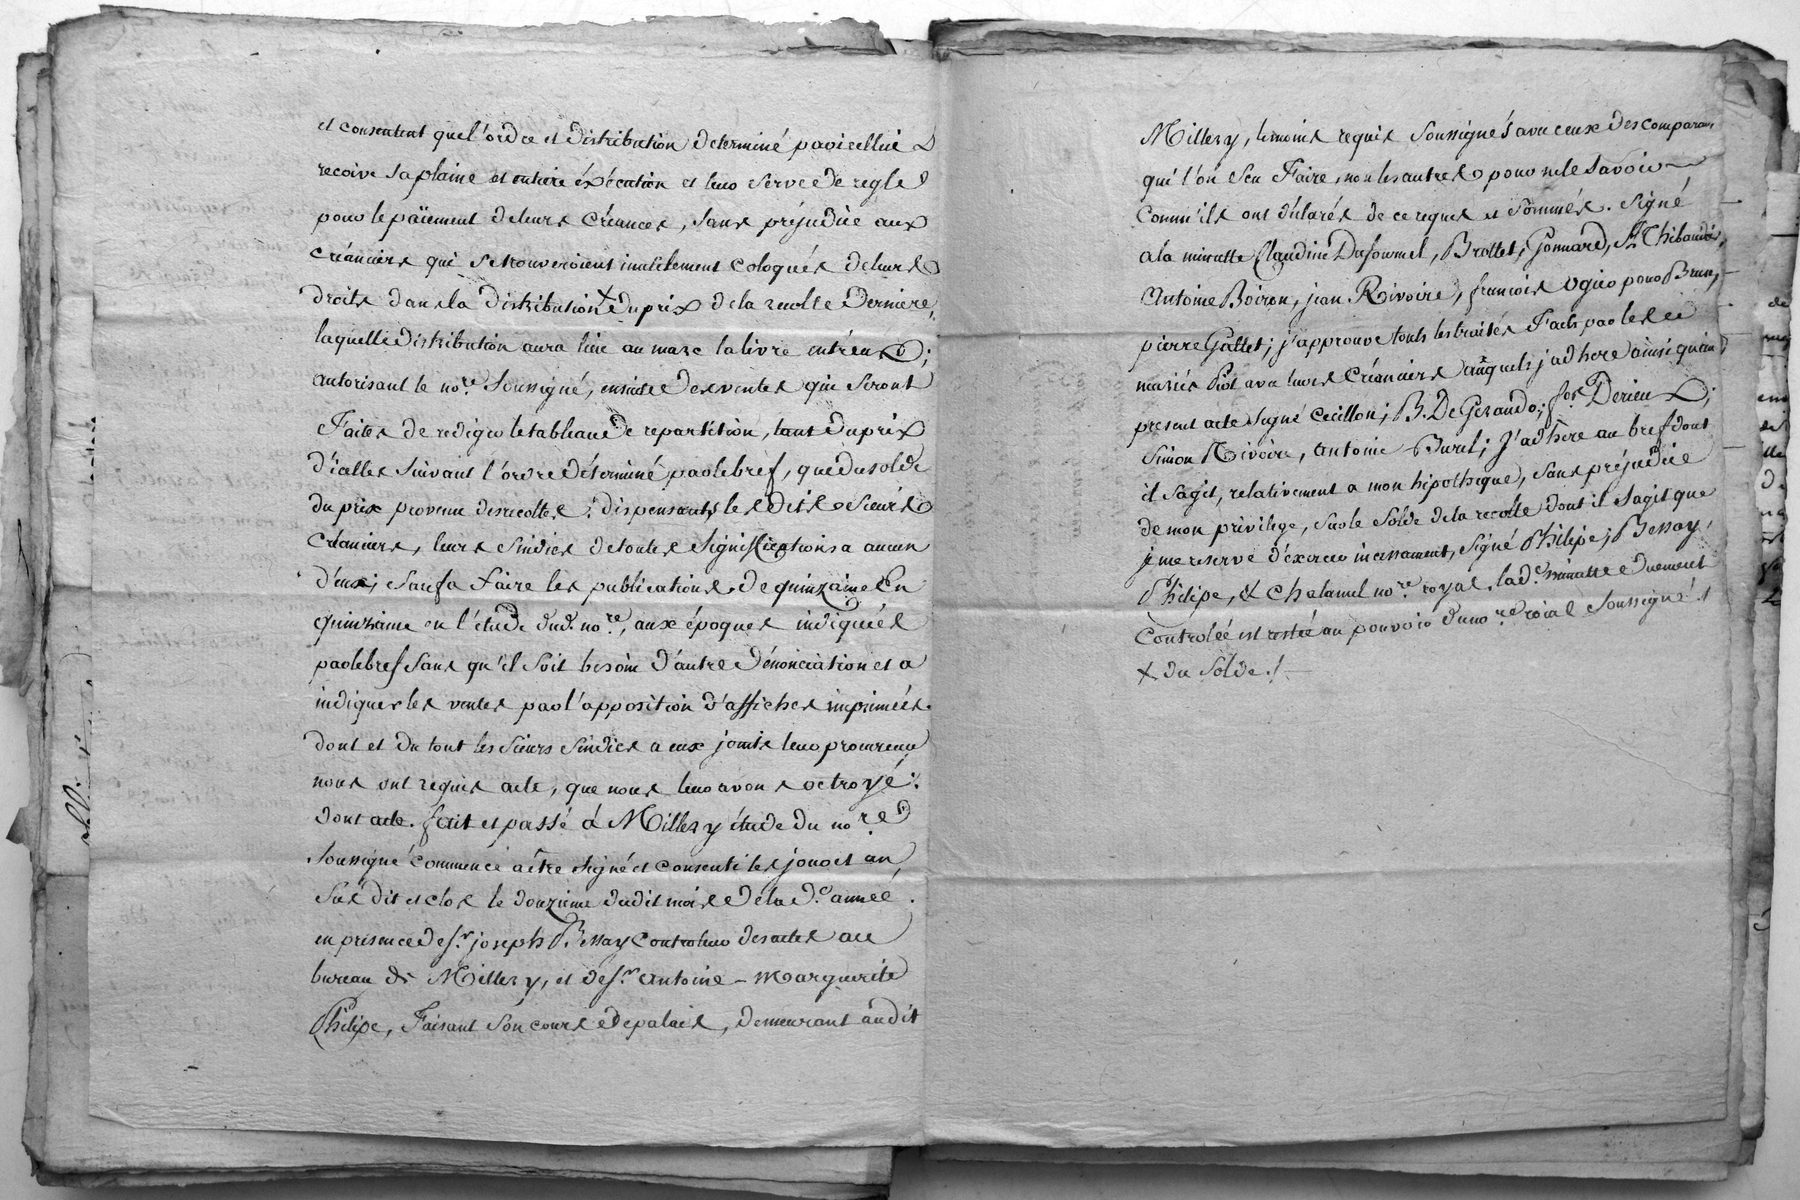 et consentent que l'ordre et distribution determiné par icellui
recoive sa plaine et entiere éxécution et leur serve de regle
pour le païement de leurs créances, sans préjudice aux
créanciers qui se trouveroient inutilement coloqués de leurs
droits dans la distribution + du prix de la recolte derniere,
laquelle distribution aura lieu au marc la livre entr'eux;
autorisant le no.re soussigné, ensuite des ventes qui seront
Faites de rediger le tableau de repartition, tant du prix
d'icelles suivant l'ordre déterminé par le bref, que du solde
du prix provenu des recoltes; dispensants les dits sieurs
Créanciers, leurs sindics de toutes significations a aucun
d'eux; sauf a faire les publications de quinzaine En
quinzaine en l'étude dud. no.re, aux époques indiquées
par le bref sans qu'il soit besoin d'autre dénonciation et a
indiquer les ventes par l'apposition d'affiches imprimées.
dont et du tout les sieurs sindics a eux joints leur procureur
nous ont requis acte, que nous leur avons octroyé.
dont acte. fait et passé á Millery étude du no.re
soussigné commencé a être signé et consenti les jour et an
sus dit et clos le douzieme dudit mois de la d.e année.
en présence de s.r joseph Bessay controleur des actes au
bureau de Millery, et de s.r antoine - marguerite
Philipe, Faisant son cours de palais, demeurant audit
Millery, temoins requis soussignés avec ceux des comparans
qui l'on sçu Faire, non les autres pour ne le savoir
Comm'ils ont déclarés de ce requis et sommés. signé
a la minutte Claudine Dufournel, Brottet, Gonnard, Thibaudier,
antoine Boiron, jean Rivoire, francois ogier pour Brun,
pierre Gallet; j'approuve touts les traités Faits par les
mariés Piot avec leurs créanciers auxquels j'adhere ainsi qu'au
present acte signé Cecillon; B. DeGerando; f.ois Derieux;
simon Rivoire, antoine Burel; J'adhere au bref dont
il s'agit, relativement a mon hipotheque, sans préjudice
de mon privilege, sur le solde de la recolte dont il s'agit que
je me reserve d'exercer incessament, signé Philipe; Bessay,
Philipe, & Chatanel no.re royal. lad.e minutte duement
Controlée est restée au pouvoir du no.re roial soussigné./.
+ du solde./.